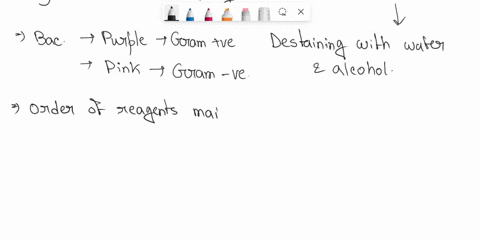 ⇒ Bac. → Purple → Goram +ve
→ Pink → Goram -ve.
Destaining with water
& alcohol.
⇒ Order of reagents mai